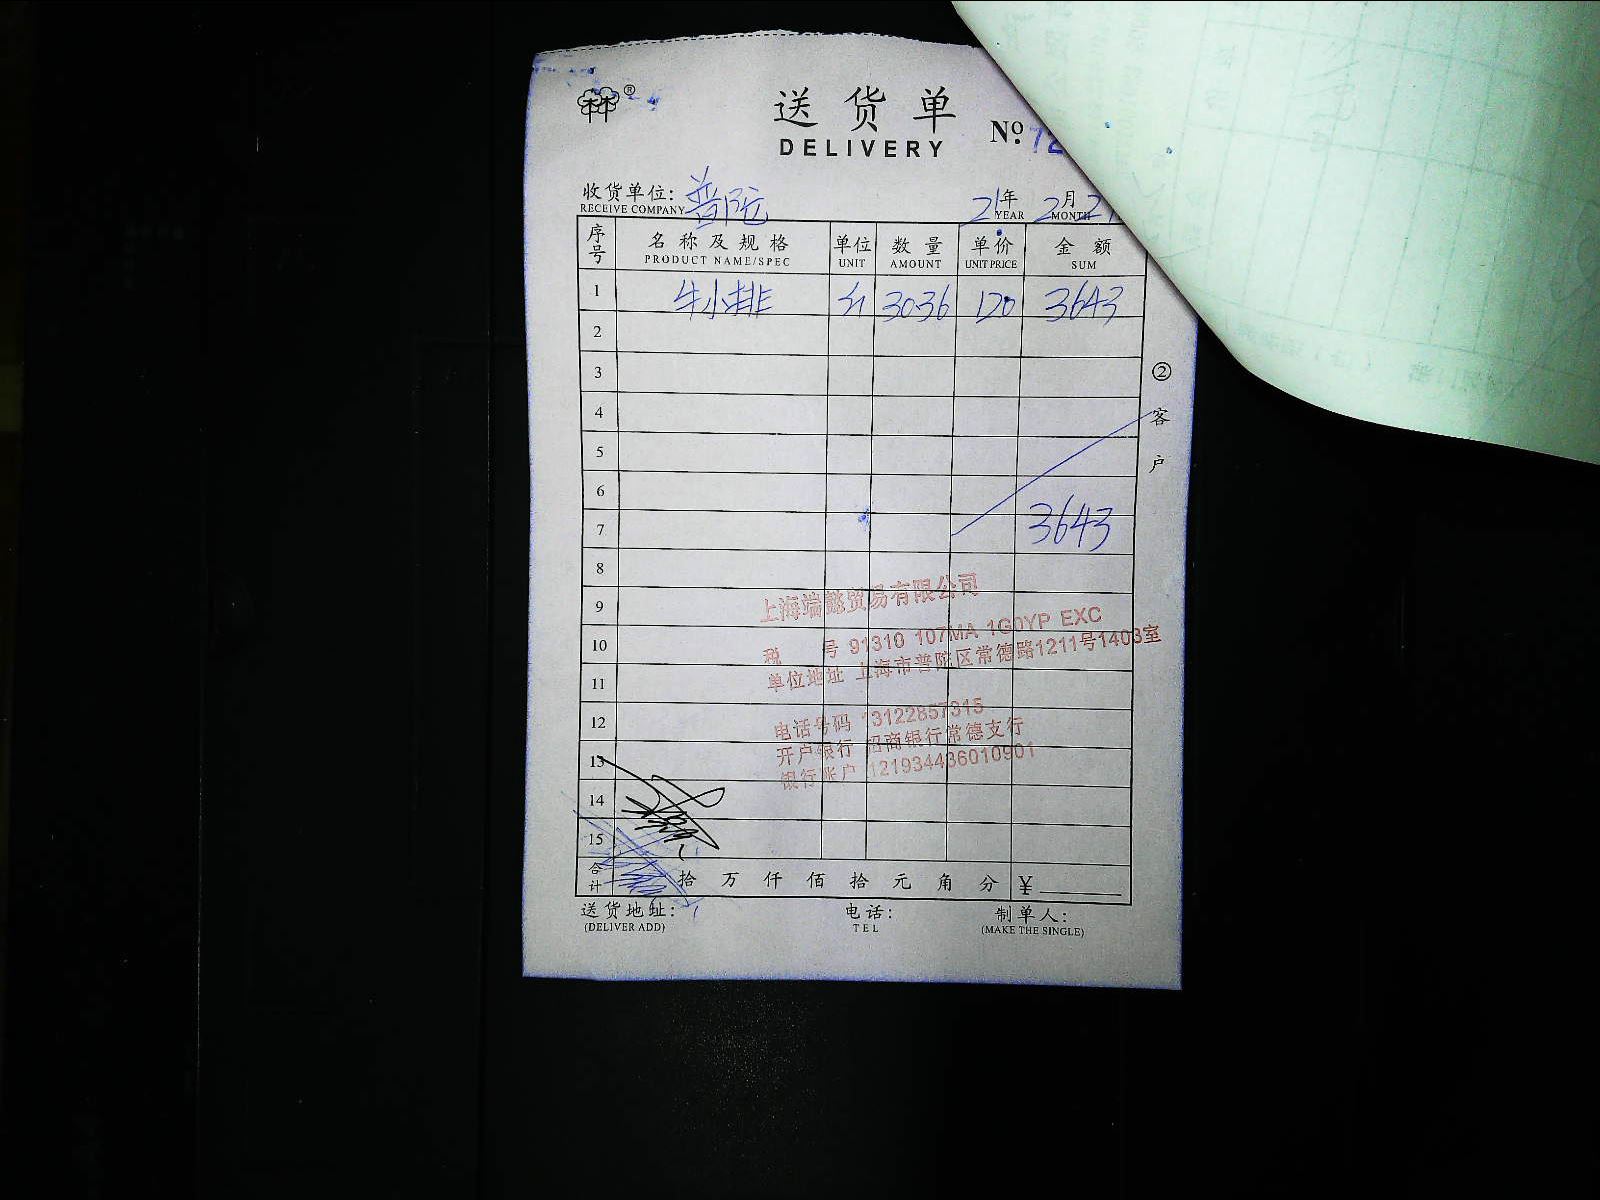 ®
送货单
DELIVERY
Nº 72
收货单位: 普陀
RECEIVE COMPANY
21年 2月 2
YEAR MONTH
序号 名称及规格 单位 数量 单价 金额
PRODUCT NAME/SPEC UNIT AMOUNT UNIT PRICE SUM
1 牛小排 斤 30.36 120 3643
2
3
4
5
6
7 3643
8
9
10
11
12
13
14
15
② 客户
上海端懿贸易有限公司
税 号 91310 107MA 1G0YP EXC
单位地址 上海市普陀区常德路1211号1403室
电话号码 13122857315
开户银行 招商银行常德支行
银行账户 121934436010901
合计 拾 万 仟 佰 拾 元 角 分 ¥
送货地址: 电话: 制单人:
(DELIVER ADD) TEL (MAKE THE SINGLE)